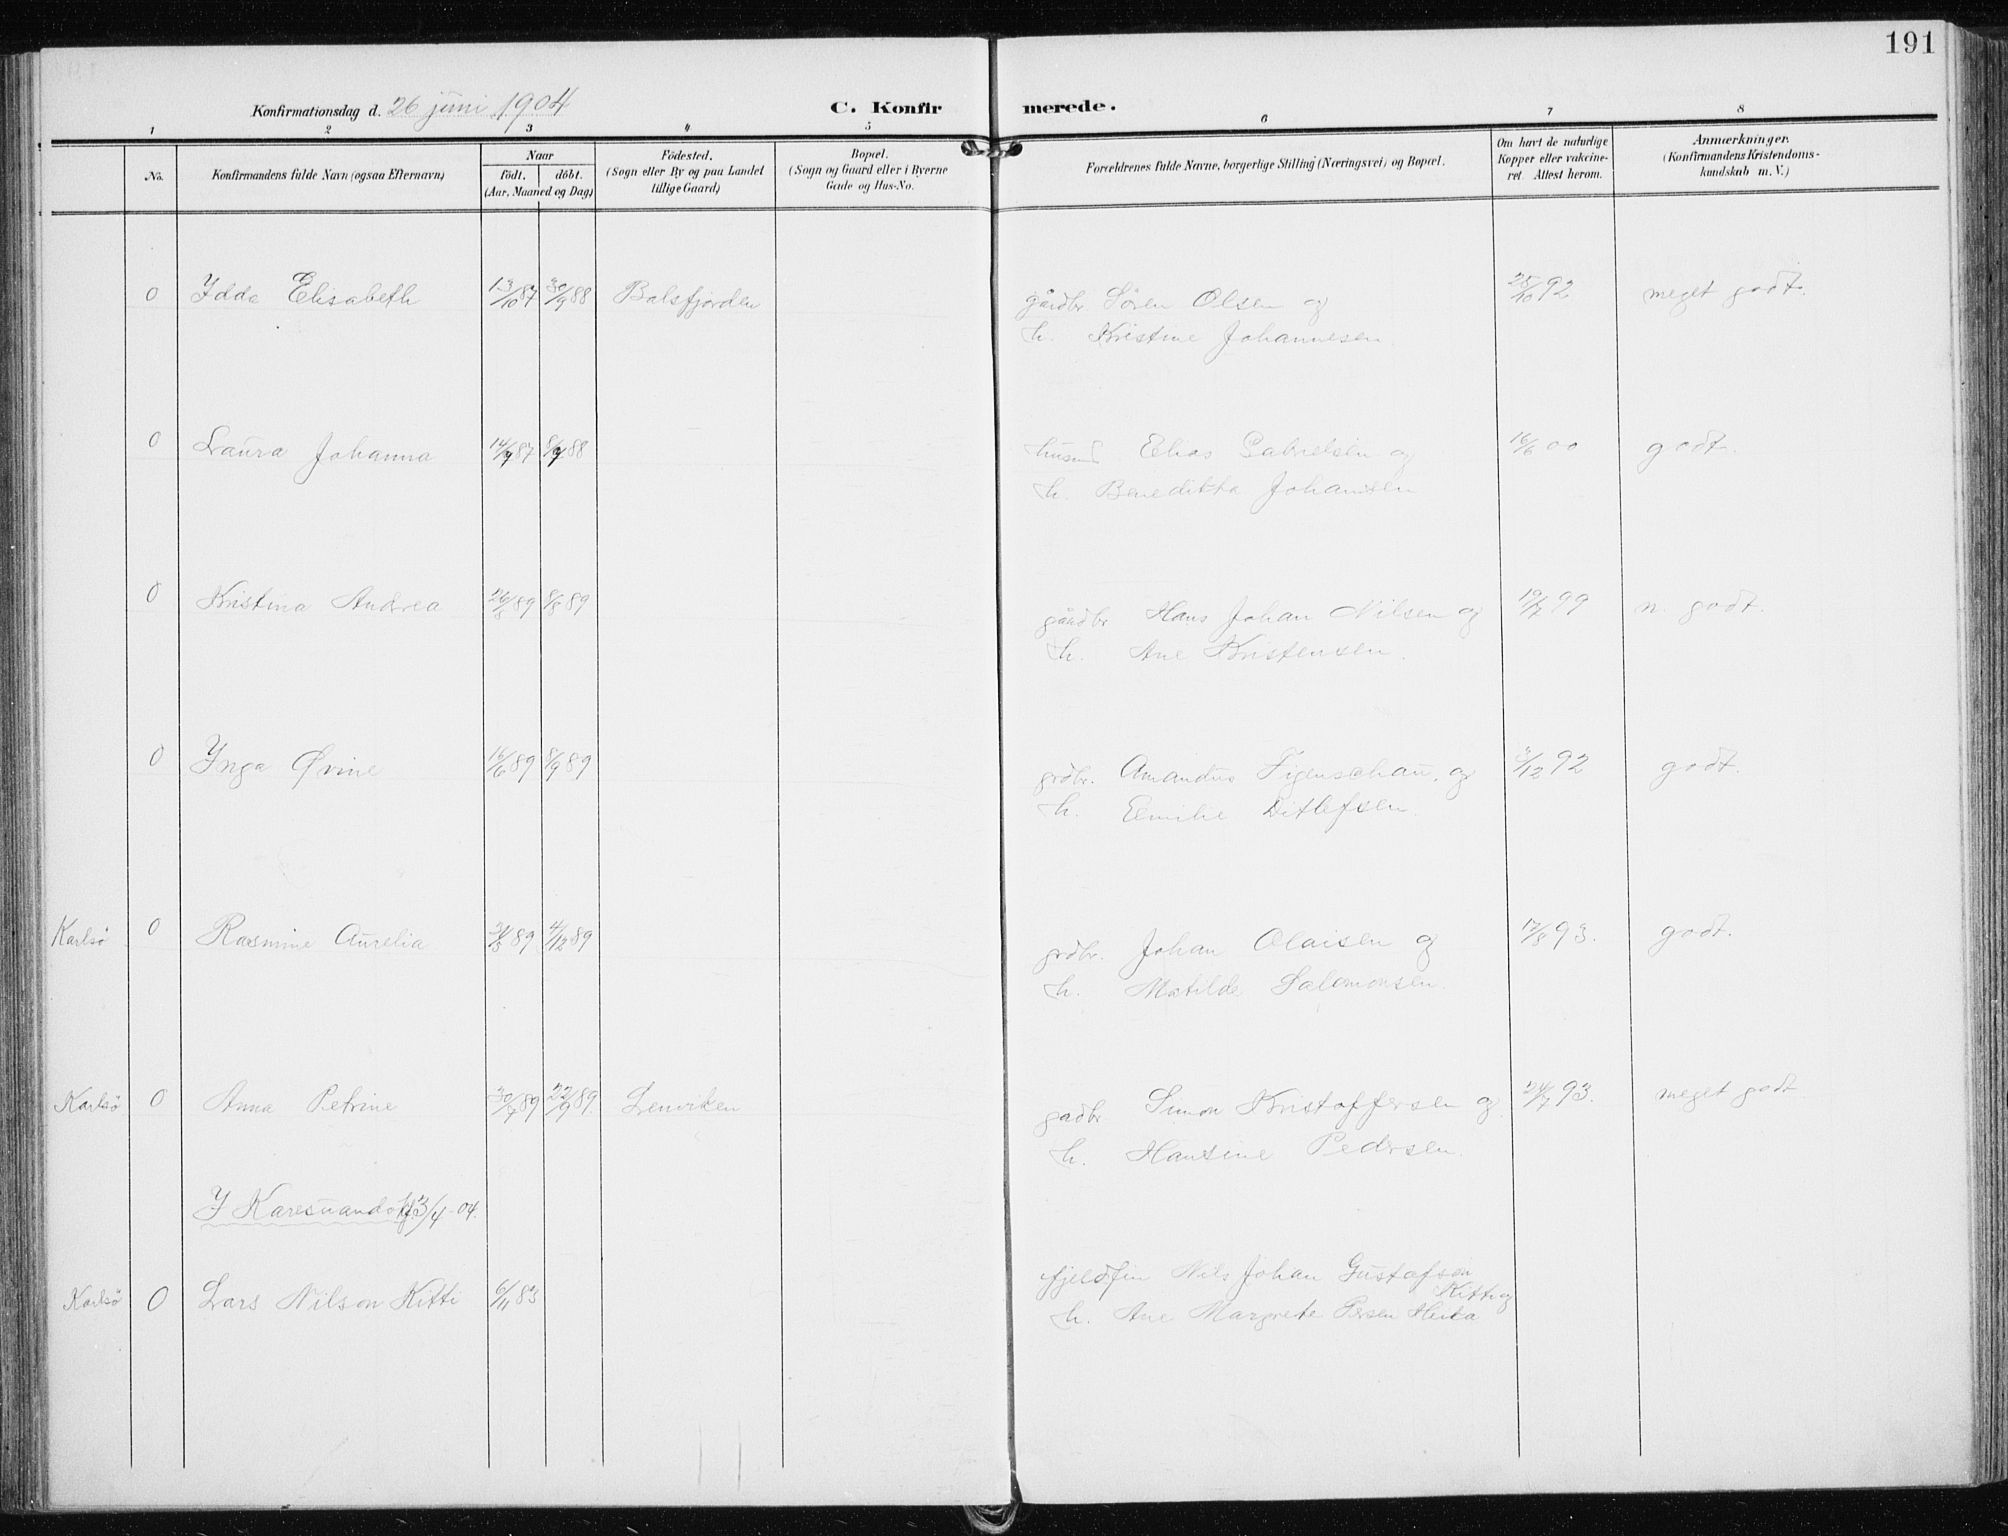 191
Konfirmationsdag d. 26 juni 1904
C. Konfir merede.
1 2 3 4 5 6 7 8
No.
Konfirmandens fulde Navn (ogsaa Efternavn)
Naar
födt. döbt.
(Aar, Maaned og Dag)
Födested.
(Sogn eller By og paa Landet
tillige Gaard)
Bopæl.
(Sogn og Gaard eller i Byerne
Gade og Hus-No.
Forældrenes fulde Navne, borgerlige Stilling (Næringsvei) og Bopæl.
Om havt de naturlige
Kopper eller vakcine-
ret. Attest herom.
Anmærkninger.
(Konfirmandens Kristendoms-
kundskab m.V.)
0 Ydda Elisabeth 13/10 87 30/9 88 Balsfjorden gårdbr Sören Olsen og 25/10 92 meget godt.
h. Kristine Johannesen
0 Laura Johanna 14/9 87 8/9 88 husmd Elias Gabrielsen og 16/6 00 godt.
h. Beneditta Johansen
0 Kristina Andrea 26/5 89 8/8 89 gårdbr Hans Johan Nilsen og 19/7 99 n. godt.
h. Ane Kristensen.
0 Ynga Øvine 16/6 89 8/9 89 grdbr. Amandus Figenschau, og 3/12 92 godt.
h. Emilie Ditlefsen.
Karlsö 0 Rasmine Aurelia 31/5 89 4/12 89 grdbr. Johan Olaisen og 17/8 93. godt.
h. Matilde Salomonsen.
Karlsö 0 Anna Petrine 30/7 89 22/9 89. Lenviken gadbr Simon Kristoffersen og 24/7 93. meget godt
h. Hansine Pedersen.
Y Karesuando kf. 3/4-04.
Karlsö 0 Lars Nilson Kitti 6/11 83 fjeldfin Nils Johan Gustafson
Kitti og
h. Ane Margrete Persen Heika